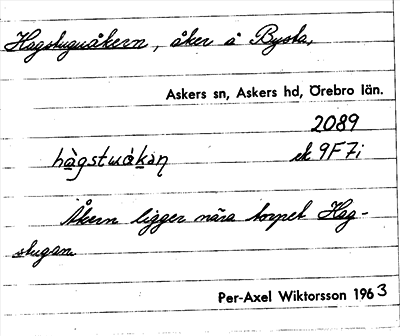 Hagstuguåkern, åker å Bysta,
Askers sn, Askers hd, Örebro län.
2089
hàgstuåkan ek 9F7i
Åkern ligger nära torpet Hag-
stugan.
Per-Axel Wiktorsson 1963